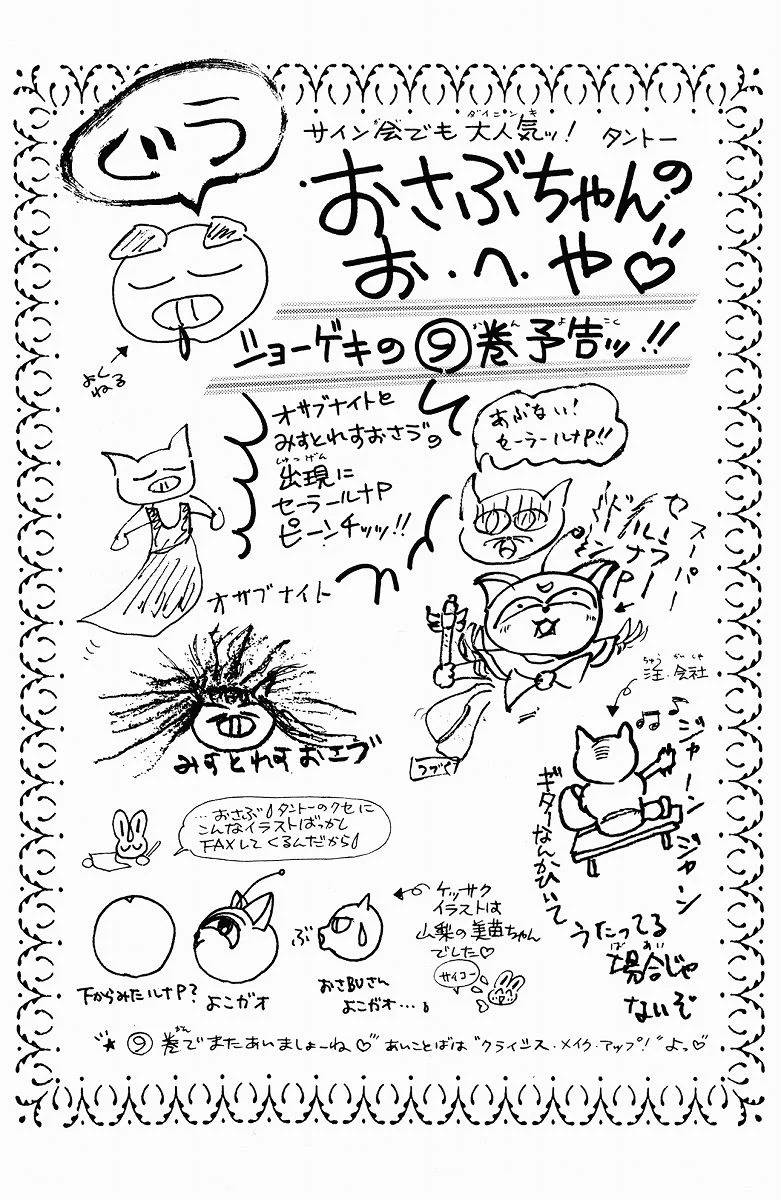 ぐう
サイン会でも大人気ッ! タントー
ダイニンキ
おさぶちゃんの
お・へ・や♡
ジョーゲキの⑨巻予告ッ!!
かん よこく
よく
ねる
オサブナイトと
みすとれすおさブの
しゅつげん
出現に
セーラールナP
ピーンチッッ!!
あぶない!
セーラールナP!!
オサブナイト
スーパー
セーラー
ルナP
ちゅう がいしゃ
注・会社
みすとれすおさブ
つづく
ジャーン
ジャーン
ギターなんかひいて
うたってる
ばあい
場合じゃ
ないぞ
…おさぶ タントーのクセに
こんなイラストばっかし
FAXしてくるんだから
ケッサク
イラストは
山梨の美苗ちゃん
でした♡
サイコー
ぶ
下からみたルナP?
よこガオ
おさBUさん
よこガオ…。
★⑨巻でまたあいましょーね♡ あいことばは“クライシス・メイク・アップ!”よっ♡
かん